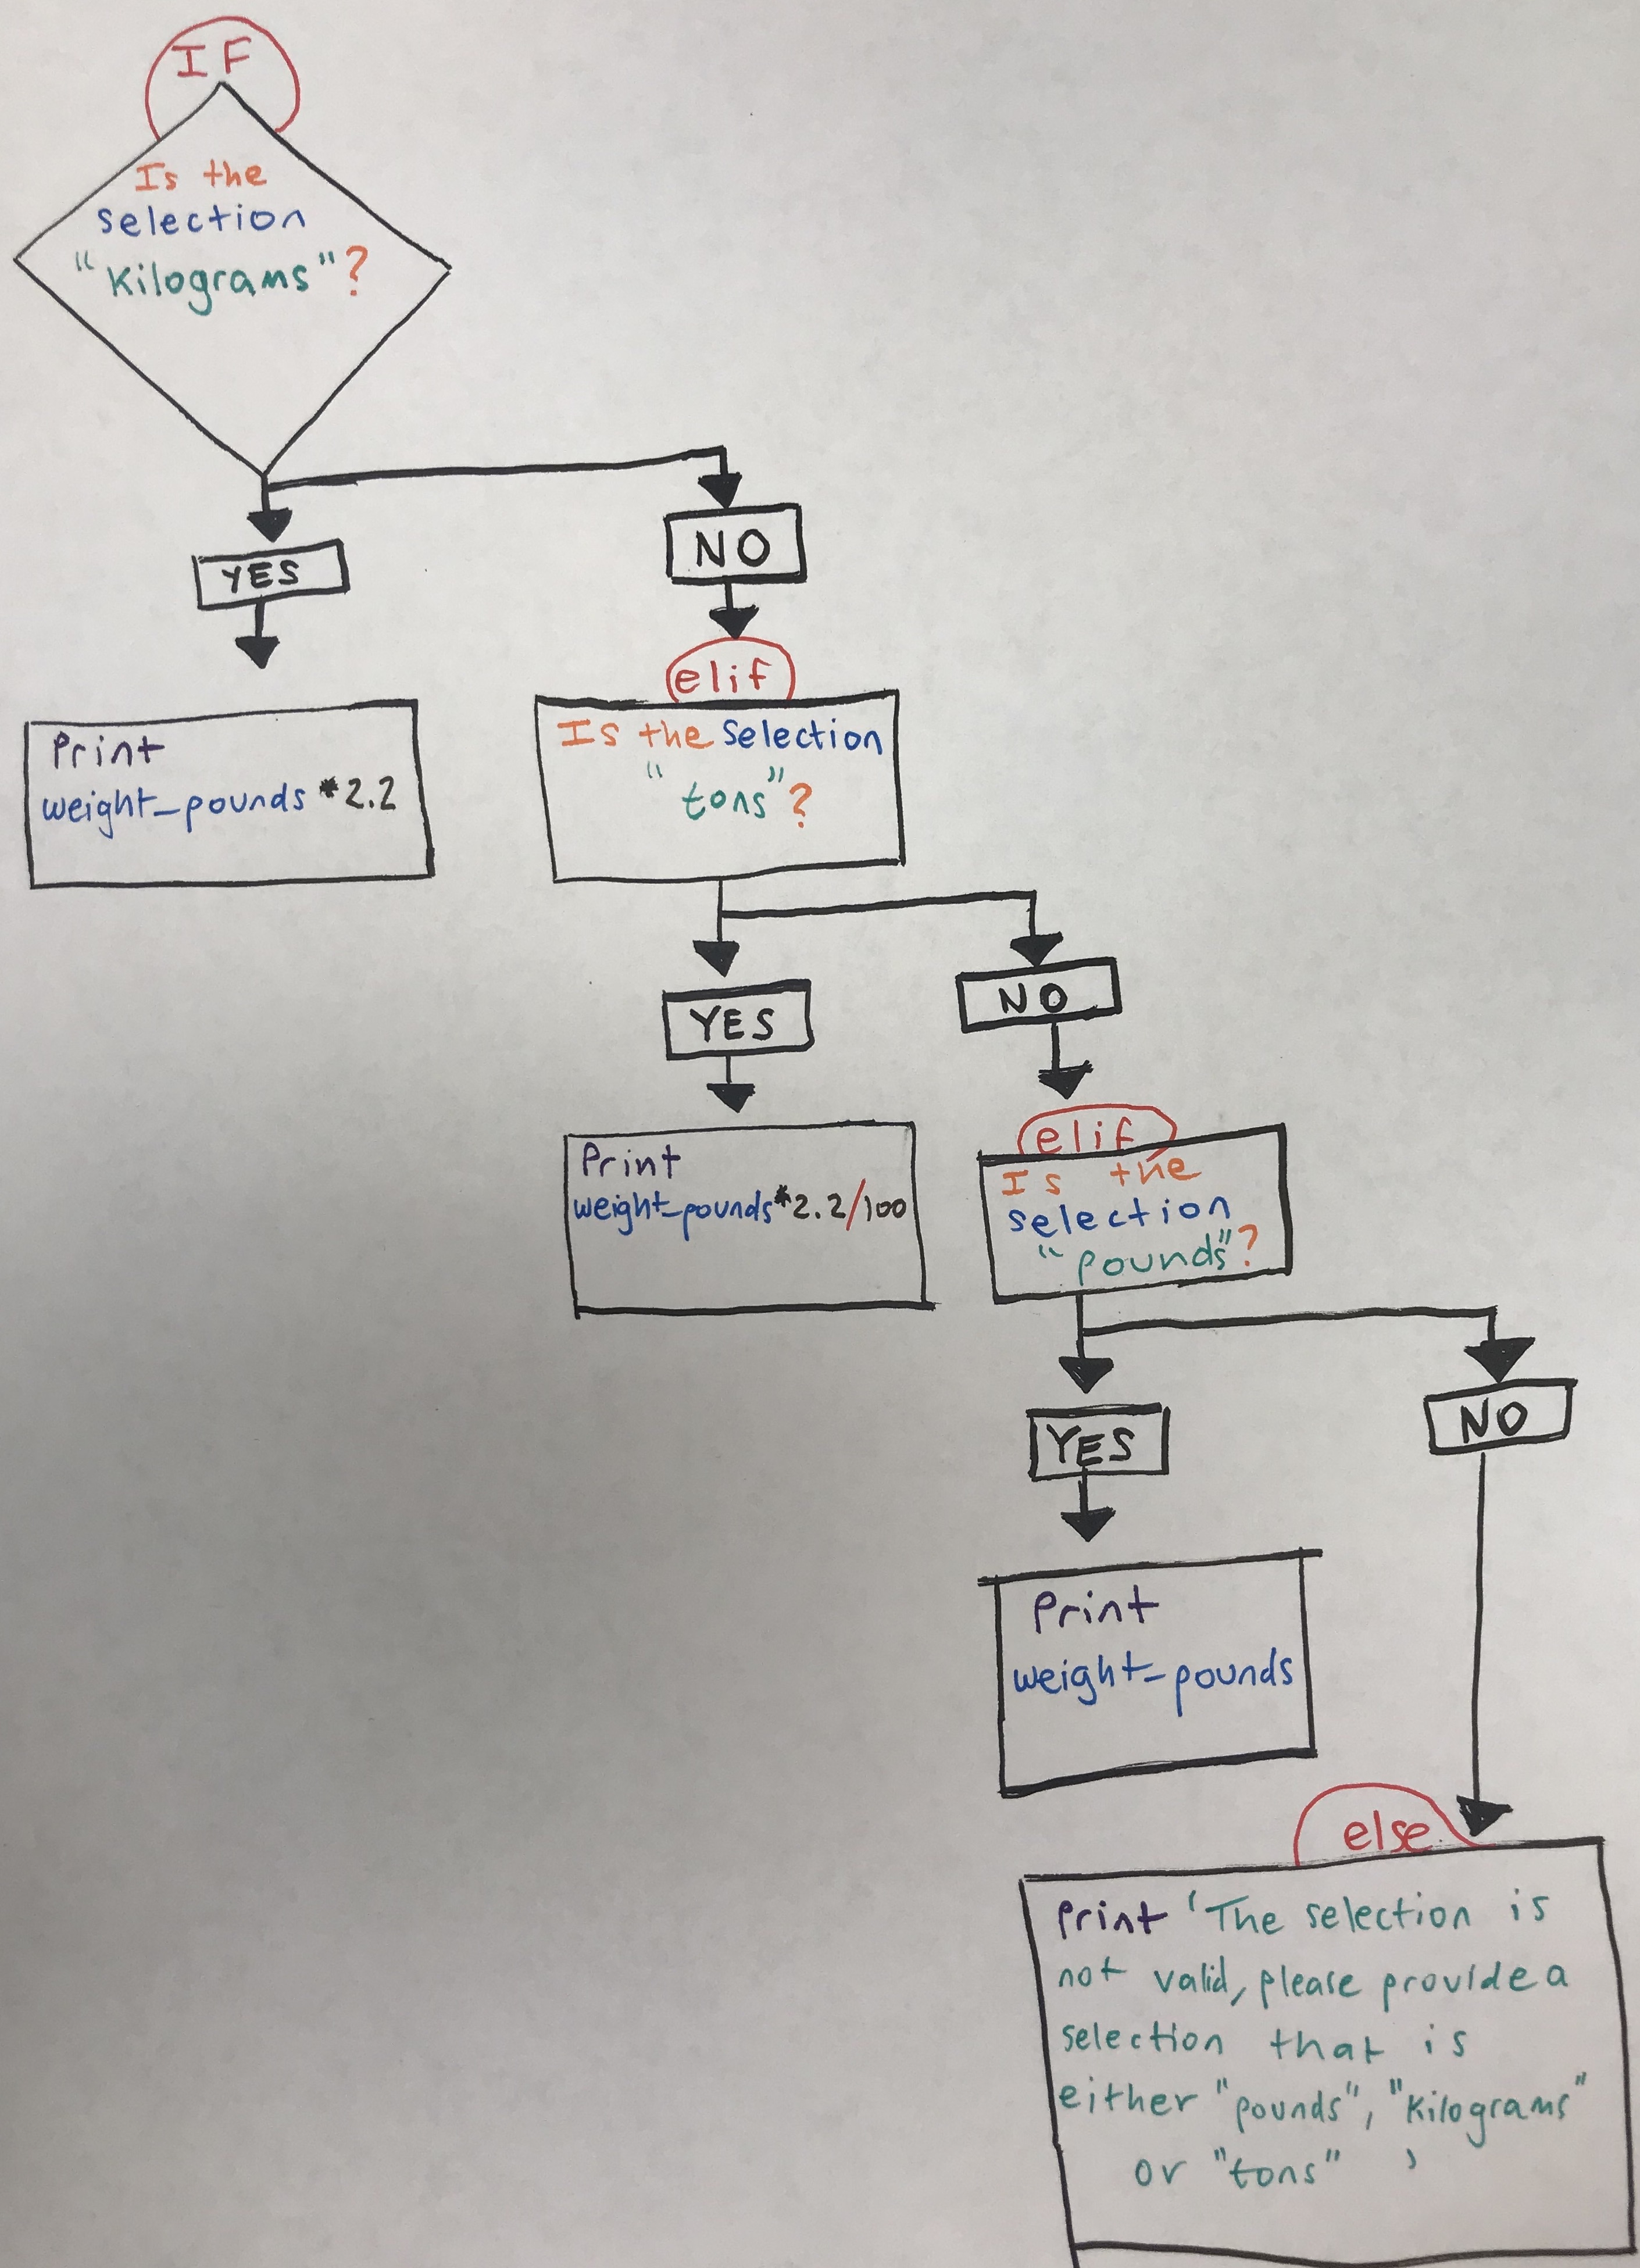 IF
Is the
selection
"Kilograms"?
YES
NO
Print
weight_pounds *2.2
elif
Is the Selection
"tons"?
YES
NO
Print
weight_pounds*2.2/100
elif
Is the
selection
"pounds"?
YES
NO
Print
weight_pounds
else
Print 'The selection is
not valid, please provide a
selection that is
either "pounds", "Kilograms"
or "tons" '